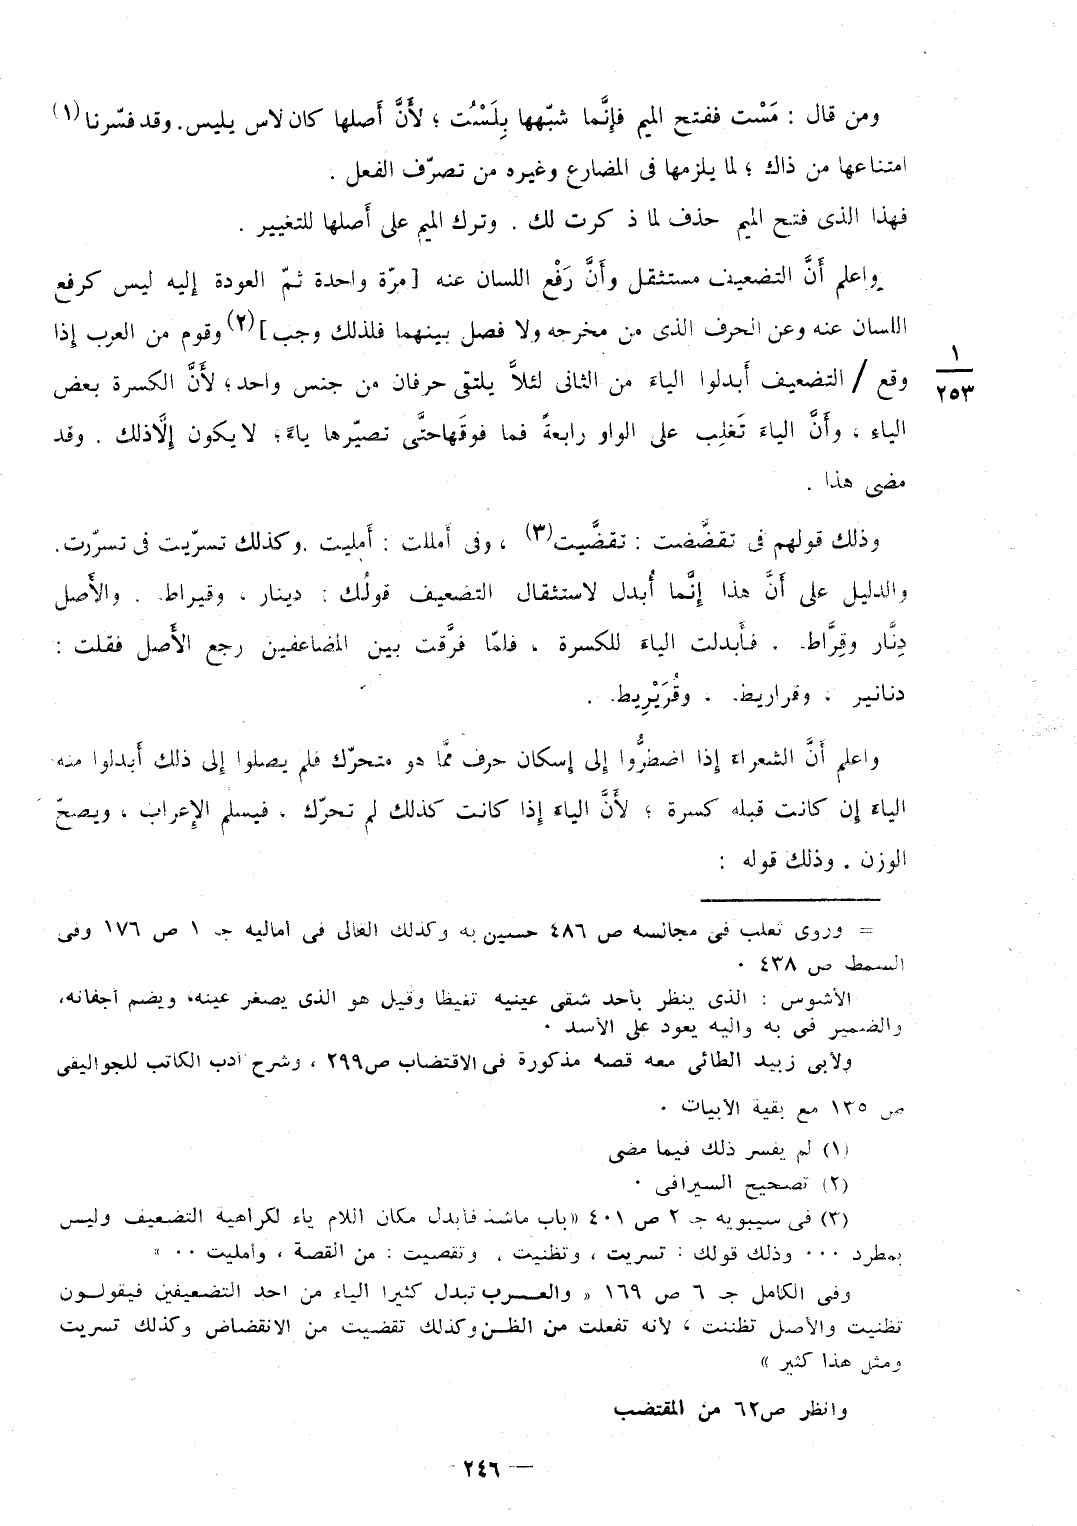 ومن قال : مَسْت ففتح الميم فإنَّما شبّهها بِلَسْت ؛ لأَنَّ أَصلها كان لاس يليس . وقد فسّرنا (١)
امتناعها من ذاك ؛ لما يلزمها فى المضارع وغيره من تصرّف الفعل .
فهذا الذى فتح الميم حذف لما ذكرت لك . وترك الميم على أَصلها للتغيير .
واعلم أَنَّ التضعيف مستثقل وأَنَّ رَفْع اللسان عنه [ مرّة واحدة ثمّ العودة إليه ليس كرفع
اللسان عنه وعن الحرف الذى من مخرجه ولا فصل بينهما فلذلك وجب ] (٢) وقوم من العرب إذا
١
٢٥٣
وقع / التضعيف أَبدلوا الياءَ من الثانى لئلاَّ يلتقى حرفان من جنس واحد ؛ لأَنَّ الكسرة بعض
الياءِ ، وأَنَّ الياءَ تَغلِب على الواو رابعةً فما فوقَها حتَّى تصيّرها ياءً ؛ لا يكون إلَّا ذلك . وقد
مضى هذا .
وذلك قولهم فى تقضَّضت : تقضَّيت (٣) ، وفى أَمللت : أَمليت . وكذلك تسرّيت فى تسرّرت .
والدليل على أَنَّ هذا إنَّما أُبدل لاستثقال التضعيف قولُك : دينار ، وقيراط . والأَصل
دِنَّار وقِرَّاط . فأَبدلت الياءَ للكسرة ، فلمّا فرَّقت بين المضاعفين رجع الأَصل فقلت :
دنانير ، وقراريط ، وقُرَيْرِيط .
واعلم أَنَّ الشعراءَ إذا اضطرُّوا إلى إسكان حرف ممَّا هو متحرّك فلم يصلوا إلى ذلك أَبدلوا منه
الياءَ إن كانت قبله كسرة ؛ لأَنَّ الياءَ إذا كانت كذلك لم تحرّك ، فيسلم الإعراب ، ويصحّ
الوزن . وذلك قوله :
= وروى ثعلب فى مجالسه ص ٤٨٦ حسين به وكذلك القالى فى أماليه جـ ١ ص ١٧٦ وفى
السمط ص ٤٣٨ .
الأشوس : الذى ينظر بأحد شقى عينيه تغيظا وقيل هو الذى يصغر عينه، ويضم أجفانه،
والضمير فى به واليه يعود على الأسد .
ولأبى زبيد الطائى معه قصة مذكورة فى الاقتضاب ص ٢٩٩ ، وشرح أدب الكاتب للجواليقى
ص ١٣٥ مع بقية الأبيات .
(١) لم يفسر ذلك فيما مضى
(٢) تصحيح السيرافى .
(٣) فى سيبويه جـ ٢ ص ٤٠١ «باب ما شذ فأبدل مكان اللام ياء لكراهية التضعيف وليس
بمطرد ... وذلك قولك : تسريت ، وتظنيت ، وتقصيت : من القصة ، وأمليت .. »
وفى الكامل جـ ٦ ص ١٦٩ « والعـــرب تبدل كثيرا الياء من احد التضعيفين فيقولـــون
تظنيت والأصل تظننت ، لأنه تفعلت من الظن وكذلك تقضيت من الانقضاض وكذلك تسريت
ومثل هذا كثير »
وانظر ص ٦٢ من المقتضب
— ٢٤٦ —